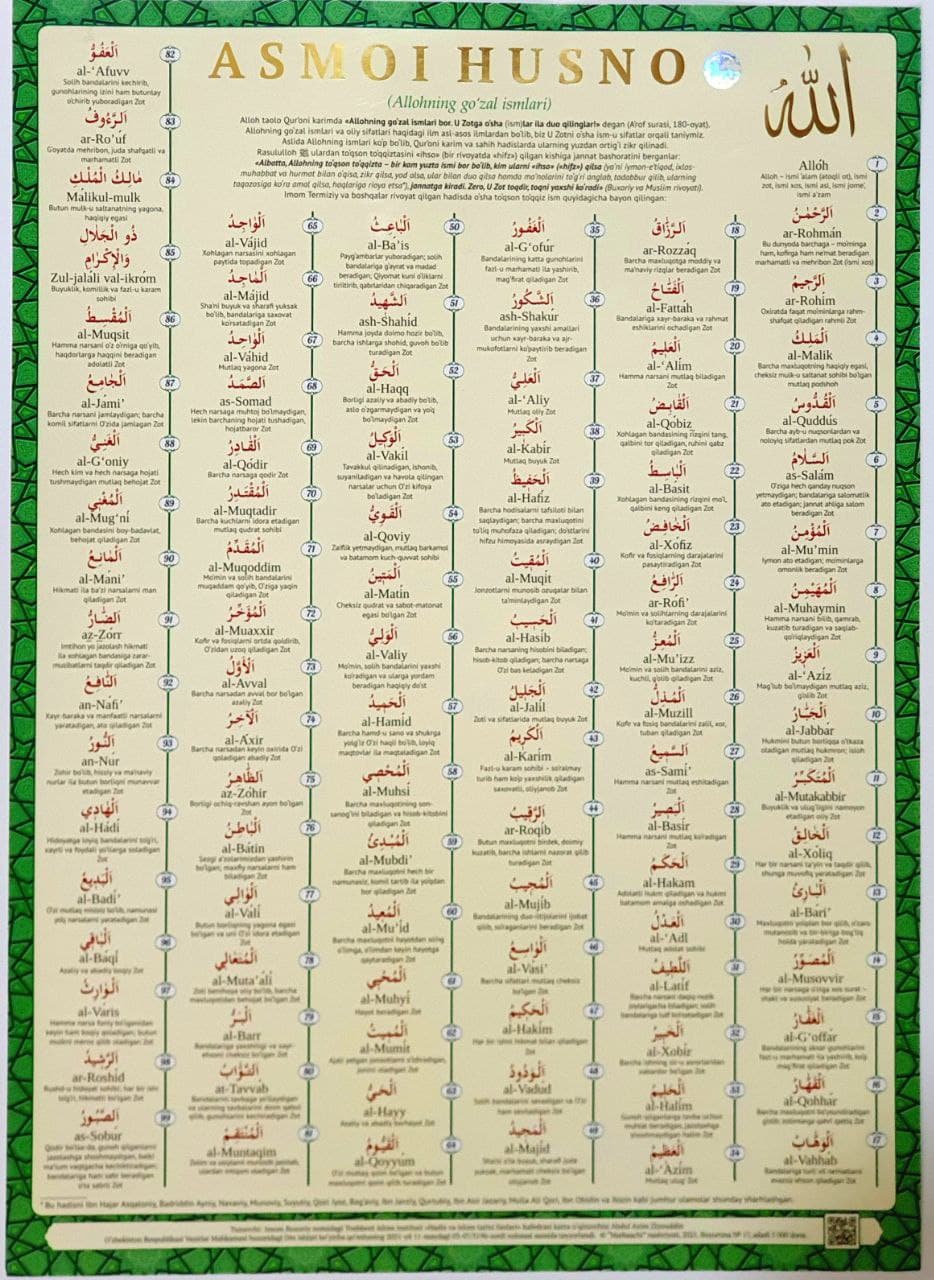 ASMOI HUSNO
(Allohning go‘zal ismlari)
Alloh taolo Qur'oni karimda «Allohning go‘zal ismlari bor. U Zotga o‘sha (ism)lar ila duo qilinglar!» degan (A'rof surasi, 180-oyat).
Allohning go‘zal ismlari va oliy sifatlari haqidagi ilm asl-asos ilmlardan bo‘lib, biz U Zotni o‘sha ism-u sifatlar orqali taniymiz.
Aslida Allohning ismlari ko‘p bo‘lib, Qur'oni karim va sahih hadislarda ularning yuzdan ortig‘i zikr qilinadi.
Rasululloh ﷺ ulardan to‘qson to‘qqiztasini «ihso» (bir rivoyatda «hifz») qilgan kishiga jannat bashoratini berganlar:
«Albatta, Allohning to‘qson to‘qqizta – bir kam yuzta ismi bor bo‘lib, kim ularni «ihso» («hifz») qilsa (ya'ni iymon-e'tiqod, ixlos-
muhabbat va hurmat bilan o‘qisa, zikr qilsa, yod olsa, ular bilan duo qilsa hamda ma'nolarini to‘g‘ri anglab, tadabbur qilib, ularning
taqozosiga ko‘ra amal qilsa, haqlariga rioya etsa*), jannatga kiradi. Zero, U Zot toqdir, toqni yaxshi ko‘radi» (Buxoriy va Muslim rivoyati).
Imom Termiziy va boshqalar rivoyat qilgan hadisda o‘sha to‘qson to‘qqiz ism quyidagicha bayon qilingan:
الله
Allóh
1
Alloh – ismi a'lam (atoqli ot), ismi
zot, ismi xos, ismi asl, ismi jome',
ismi a'zam
اَلرَّحْمٰنُ
2
ar-Rohmán
Bu dunyoda barchaga – mo‘minga
ham, kofirga ham ne'mat beradigan
marhamatli va mehribon Zot (ismi xos)
اَلرَّحِيمُ
3
ar-Rohím
Oxiratda faqat mo‘minlarga rahm-
shafqat qiladigan rahmli Zot
اَلْمَلِكُ
4
al-Malik
Barcha maxluqotning haqiqiy egasi,
cheksiz mulk-u saltanat sohibi bo‘lgan
mutlaq podshoh
اَلْقُدُّوسُ
5
al-Quddús
Barcha ayb-u nuqsonlardan va
noloyiq sifatlardan mutlaq pok Zot
اَلسَّلَامُ
6
as-Salám
O‘ziga hech qanday nuqson
yetmaydigan; bandalariga salomatlik
ato etadigan; jannat ahliga salom
beradigan Zot
اَلْمُؤْمِنُ
7
al-Mu’min
Iymon ato etadigan; mo‘minlarga
omonlik beradigan Zot
اَلْمُهَيْمِنُ
8
al-Muhaymin
Hamma narsani bilib, qamrab,
kuzatib turadigan va saqlab-
qo‘riqlaydigan Zot
اَلْعَزِيزُ
9
al-‘Azíz
Mag‘lub bo‘lmaydigan mutlaq aziz,
g‘olib Zot
اَلْجَبَّارُ
10
al-Jabbár
Hukmini butun borliqqa o‘tkaza
oladigan mutlaq hukmron; isloh
qiladigan Zot
اَلْمُتَكَبِّرُ
11
al-Mutakabbir
Buyuklik va ulug‘ligini namoyon
etadigan oliy Zot
اَلْخَالِقُ
12
al-Xóliq
Har bir narsani ta'yin va taqdir qilib,
shunga muvofiq yaratadigan Zot
اَلْبَارِئُ
13
al-Bari’
اَلْمُصَوِّرُ
14
al-Musovvir
اَلْغَفَّارُ
15
al-G‘offár
اَلْقَهَّارُ
16
al-Qohhár
اَلْوَهَّابُ
17
al-Vahháb
اَلرَّزَّاقُ
18
ar-Rozzáq
Barcha maxluqotga moddiy va
ma'naviy rizqlar beradigan Zot
اَلْفَتَّاحُ
19
al-Fattáh
Bandalariga xayr-baraka va rahmat
eshiklarini ochadigan Zot
اَلْعَلِيمُ
20
al-‘Alím
Hamma narsani mutlaq biladigan
Zot
اَلْقَابِضُ
21
al-Qobiz
Xohlagan bandasining rizqini tang,
qalbini tor qiladigan, ruhini qabz
qiladigan Zot
اَلْبَاسِطُ
22
al-Basit
Xohlagan bandasining rizqini mo‘l,
qalbini keng qiladigan Zot
اَلْخَافِضُ
23
al-Xófiz
Kofir va fosiqlarning darajalarini
pasaytiradigan Zot
اَلرَّافِعُ
24
ar-Rófi’
Mo‘min va solihlarning darajalarini
ko‘taradigan Zot
اَلْمُعِزُّ
25
al-Mu’izz
Mo‘min va solih bandalarini aziz,
kuchli, g‘olib qiladigan Zot
اَلْمُذِلُّ
26
al-Muzill
Kofir va fosiq bandalarni zalil, xor,
tuban qiladigan Zot
اَلسَّمِيعُ
27
as-Samí’
Hamma narsani mutlaq eshitadigan
Zot
اَلْبَصِيرُ
28
al-Basír
Hamma narsani mutlaq ko‘radigan
Zot
اَلْحَكَمُ
29
al-Hakam
Adolatli hukm qiladigan va hukmi
batamom amalga oshadigan Zot
اَلْعَدْلُ
30
al-‘Adl
Mutlaq adolat sohibi
اَللَّطِيفُ
31
al-Latíf
اَلْخَبِيرُ
32
al-Xobír
اَلْحَلِيمُ
33
al-Halím
اَلْعَظِيمُ
34
al-‘Azím
Mutlaq ulug‘ Zot
اَلْغَفُورُ
35
al-G‘ofúr
Bandalarining katta gunohlarini
fazl-u marhamati ila yashirib,
mag‘firat qiladigan Zot
اَلشَّكُورُ
36
ash-Shakúr
Bandalarining yaxshi amallari
uchun xayr-baraka va ajr-
mukofotlarni ko‘paytirib beradigan
Zot
اَلْعَلِيُّ
37
al-‘Aliy
Mutlaq oliy Zot
اَلْكَبِيرُ
38
al-Kabír
Mutlaq buyuk Zot
اَلْحَفِيظُ
39
al-Hafíz
Barcha hodisalarni tafsiloti bilan
saqlaydigan; barcha maxluqotini
to‘liq muhofaza qiladigan; do‘stlarini
hifzu himoyasida asraydigan Zot
اَلْمُقِيتُ
40
al-Muqít
Jonzotlarni munosib ozuqalar bilan
ta'minlaydigan Zot
اَلْحَسِيبُ
41
al-Hasíb
Barcha narsaning hisobini biladigan;
hisob-kitob qiladigan; barcha narsaga
O‘zi bas keladigan Zot
اَلْجَلِيلُ
42
al-Jalíl
Zoti va sifatlarida mutlaq buyuk Zot
اَلْكَرِيمُ
43
al-Karím
Fazl-u karam sohibi – so‘ralmay
turib ham ko‘p yaxshilik qiladigan
saxovatli, oliyjanob Zot
اَلرَّقِيبُ
44
ar-Roqíb
Butun maxluqotni birdek, doimiy
kuzatib, barcha ishlarni nazorat qilib
turadigan Zot
اَلْمُجِيبُ
45
al-Mujíb
Bandalarining duo-iltijolarini ijobat
qilib, so‘raganlarini beradigan Zot
اَلْوَاسِعُ
46
al-Vasi’
Barcha sifatlari mutlaq cheksiz
bo‘lgan Zot
اَلْحَكِيمُ
47
al-Hakím
Har bir ishni hikmat bilan qiladigan
Zot
اَلْوَدُودُ
48
al-Vadud
اَلْمَجِيدُ
49
al-Majíd
اَلْبَاعِثُ
50
al-Ba’is
Payg‘ambarlar yuboradigan; solih
bandalariga g‘ayrat va madad
beradigan; Qiyomat kuni o‘liklarni
tiriltirib, qabrlaridan chiqaradigan Zot
اَلشَّهِيدُ
51
ash-Shahíd
Hamma joyda doimo hozir bo‘lib,
barcha ishlarga shohid, guvoh bo‘lib
turadigan Zot
اَلْحَقُّ
52
al-Haqq
Borligi azaliy va abadiy bo‘lib,
aslo o‘zgarmaydigan va yo‘q
bo‘lmaydigan Zot
اَلْوَكِيلُ
53
al-Vakíl
Tavakkul qilinadigan, ishonib,
suyaniladigan va havola qilingan
narsalar uchun O‘zi kifoya
bo‘ladigan Zot
اَلْقَوِيُّ
54
al-Qoviy
Zaiflik yetmaydigan, mutlaq barkamol
va batamom kuch-quvvat sohibi
اَلْمَتِينُ
55
al-Matín
Cheksiz qudrat va sabot-matonat
egasi bo‘lgan Zot
اَلْوَلِيُّ
56
al-Valiy
Mo‘min, solih bandalarini yaxshi
ko‘radigan va ularga yordam
beradigan haqiqiy do‘st
اَلْحَمِيدُ
57
al-Hamíd
Barcha hamd-u sano va shukrga
yolg‘iz O‘zi haqli bo‘lib, loyiq
maqtovlar ila maqtaladigan Zot
اَلْمُحْصِي
58
al-Muhsí
Barcha maxluqotining son-
sanog‘ini biladigan va hisob-kitobini
qiladigan Zot
اَلْمُبْدِئُ
59
al-Mubdi’
Barcha maxluqotni hech bir
namunasiz, komil tartib ila yo‘qdan
bor qiladigan Zot
اَلْمُعِيدُ
60
al-Mu’íd
Barcha maxluqotni hayotdan so‘ng
o‘limga, o‘limdan keyin hayotga
qaytaradigan Zot
اَلْمُحْيِي
61
al-Muhyí
Hayot beradigan Zot
اَلْمُمِيتُ
62
al-Mumít
اَلْحَيُّ
63
al-Hayy
اَلْقَيُّومُ
64
al-Qoyyúm
اَلْوَاجِدُ
65
al-Vájid
Xohlagan narsasini xohlagan
paytida topadigan Zot
اَلْمَاجِدُ
66
al-Májid
Sha'ni buyuk va sharafi yuksak
bo‘lib, bandalariga saxovat
ko‘rsatadigan Zot
اَلْوَاحِدُ
67
al-Váhid
Mutlaq yagona Zot
اَلصَّمَدُ
68
as-Somad
Hech narsaga muhtoj bo‘lmaydigan,
lekin barchaning hojati tushadigan,
hojatbaror Zot
اَلْقَادِرُ
69
al-Qódir
Barcha narsaga qodir Zot
اَلْمُقْتَدِرُ
70
al-Muqtadir
Barcha kuchlarni idora etadigan
mutlaq qudrat sohibi
اَلْمُقَدِّمُ
71
al-Muqoddim
Mo‘min va solih bandalarini
muqaddam qo‘yib, O‘ziga yaqin
qiladigan Zot
اَلْمُؤَخِّرُ
72
al-Muaxxir
Kofir va fosiqlarni ortda qoldirib,
O‘zidan uzoq qiladigan Zot
اَلْأَوَّلُ
73
al-Avval
Barcha narsadan avval bor bo‘lgan
azaliy Zot
اَلْآخِرُ
74
al-Áxir
Barcha narsadan keyin oxirida O‘zi
qoladigan abadiy Zot
اَلظَّاهِرُ
75
az-Zóhir
Borligi ochiq-ravshan ayon bo‘lgan
Zot
اَلْبَاطِنُ
76
al-Bátin
Sezgi a'zolarimizdan yashirin
bo‘lgan; maxfiy narsalarni ham
biladigan Zot
اَلْوَالِي
77
al-Válí
Butun borliqning yagona egasi
bo‘lgan va uni O‘zi idora etadigan
Zot
اَلْمُتَعَالِي
78
al-Muta’álí
اَلْبَرُّ
79
al-Barr
اَلتَّوَّابُ
80
at-Tavváb
اَلْمُنْتَقِمُ
81
al-Muntaqim
اَلْعَفُوُّ
82
al-‘Afuvv
Solih bandalarini kechirib,
gunohlarining izini ham butunlay
o‘chirib yuboradigan Zot
اَلرَّءُوفُ
83
ar-Ro’uf
G‘oyatda mehribon, juda shafqatli va
marhamatli Zot
مَالِكُ الْمُلْكِ
84
Málikul-mulk
Butun mulk-u saltanatning yagona,
haqiqiy egasi
ذُو الْجَلَالِ
وَالْإِكْرَامِ
85
Zul-jaláli val-ikróm
Buyuklik, komillik va fazl-u karam
sohibi
اَلْمُقْسِطُ
86
al-Muqsit
Hamma narsani o‘z o‘rniga qo‘yib,
haqdorlarga haqqini beradigan
adolatli Zot
اَلْجَامِعُ
87
al-Jámi’
Barcha narsani jamlaydigan; barcha
komil sifatlarni O‘zida jamlagan Zot
اَلْغَنِيُّ
88
al-G‘oniy
Hech kim va hech narsaga hojati
tushmaydigan mutlaq behojat Zot
اَلْمُغْنِي
89
al-Mug‘ní
Xohlagan bandasini boy-badavlat,
behojat qiladigan Zot
اَلْمَانِعُ
90
al-Máni’
Hikmati ila ba'zi narsalarni man
qiladigan Zot
اَلضَّارُّ
91
az-Zórr
Imtihon yo jazolash hikmati
ila xohlagan bandasiga zarar-
musibatlarni taqdir qiladigan Zot
اَلنَّافِعُ
92
an-Nafi’
Xayr-baraka va manfaatli narsalarni
yaratadigan, ato qiladigan Zot
اَلنُّورُ
93
an-Nur
Zohir bo‘lib, hissiy va ma'naviy
nurlar ila butun borliqni munavvar
etadigan Zot
اَلْهَادِي
94
al-Hádí
Hidoyatga loyiq bandalarini to‘g‘ri,
xayrli va foydali yo‘llarga soladigan
Zot
اَلْبَدِيعُ
95
al-Badí’
اَلْبَاقِي
96
al-Báqí
Azaliy va abadiy boqiy Zot
اَلْوَارِثُ
97
al-Váris
اَلرَّشِيدُ
98
ar-Roshíd
اَلصَّبُورُ
99
as-Sobúr